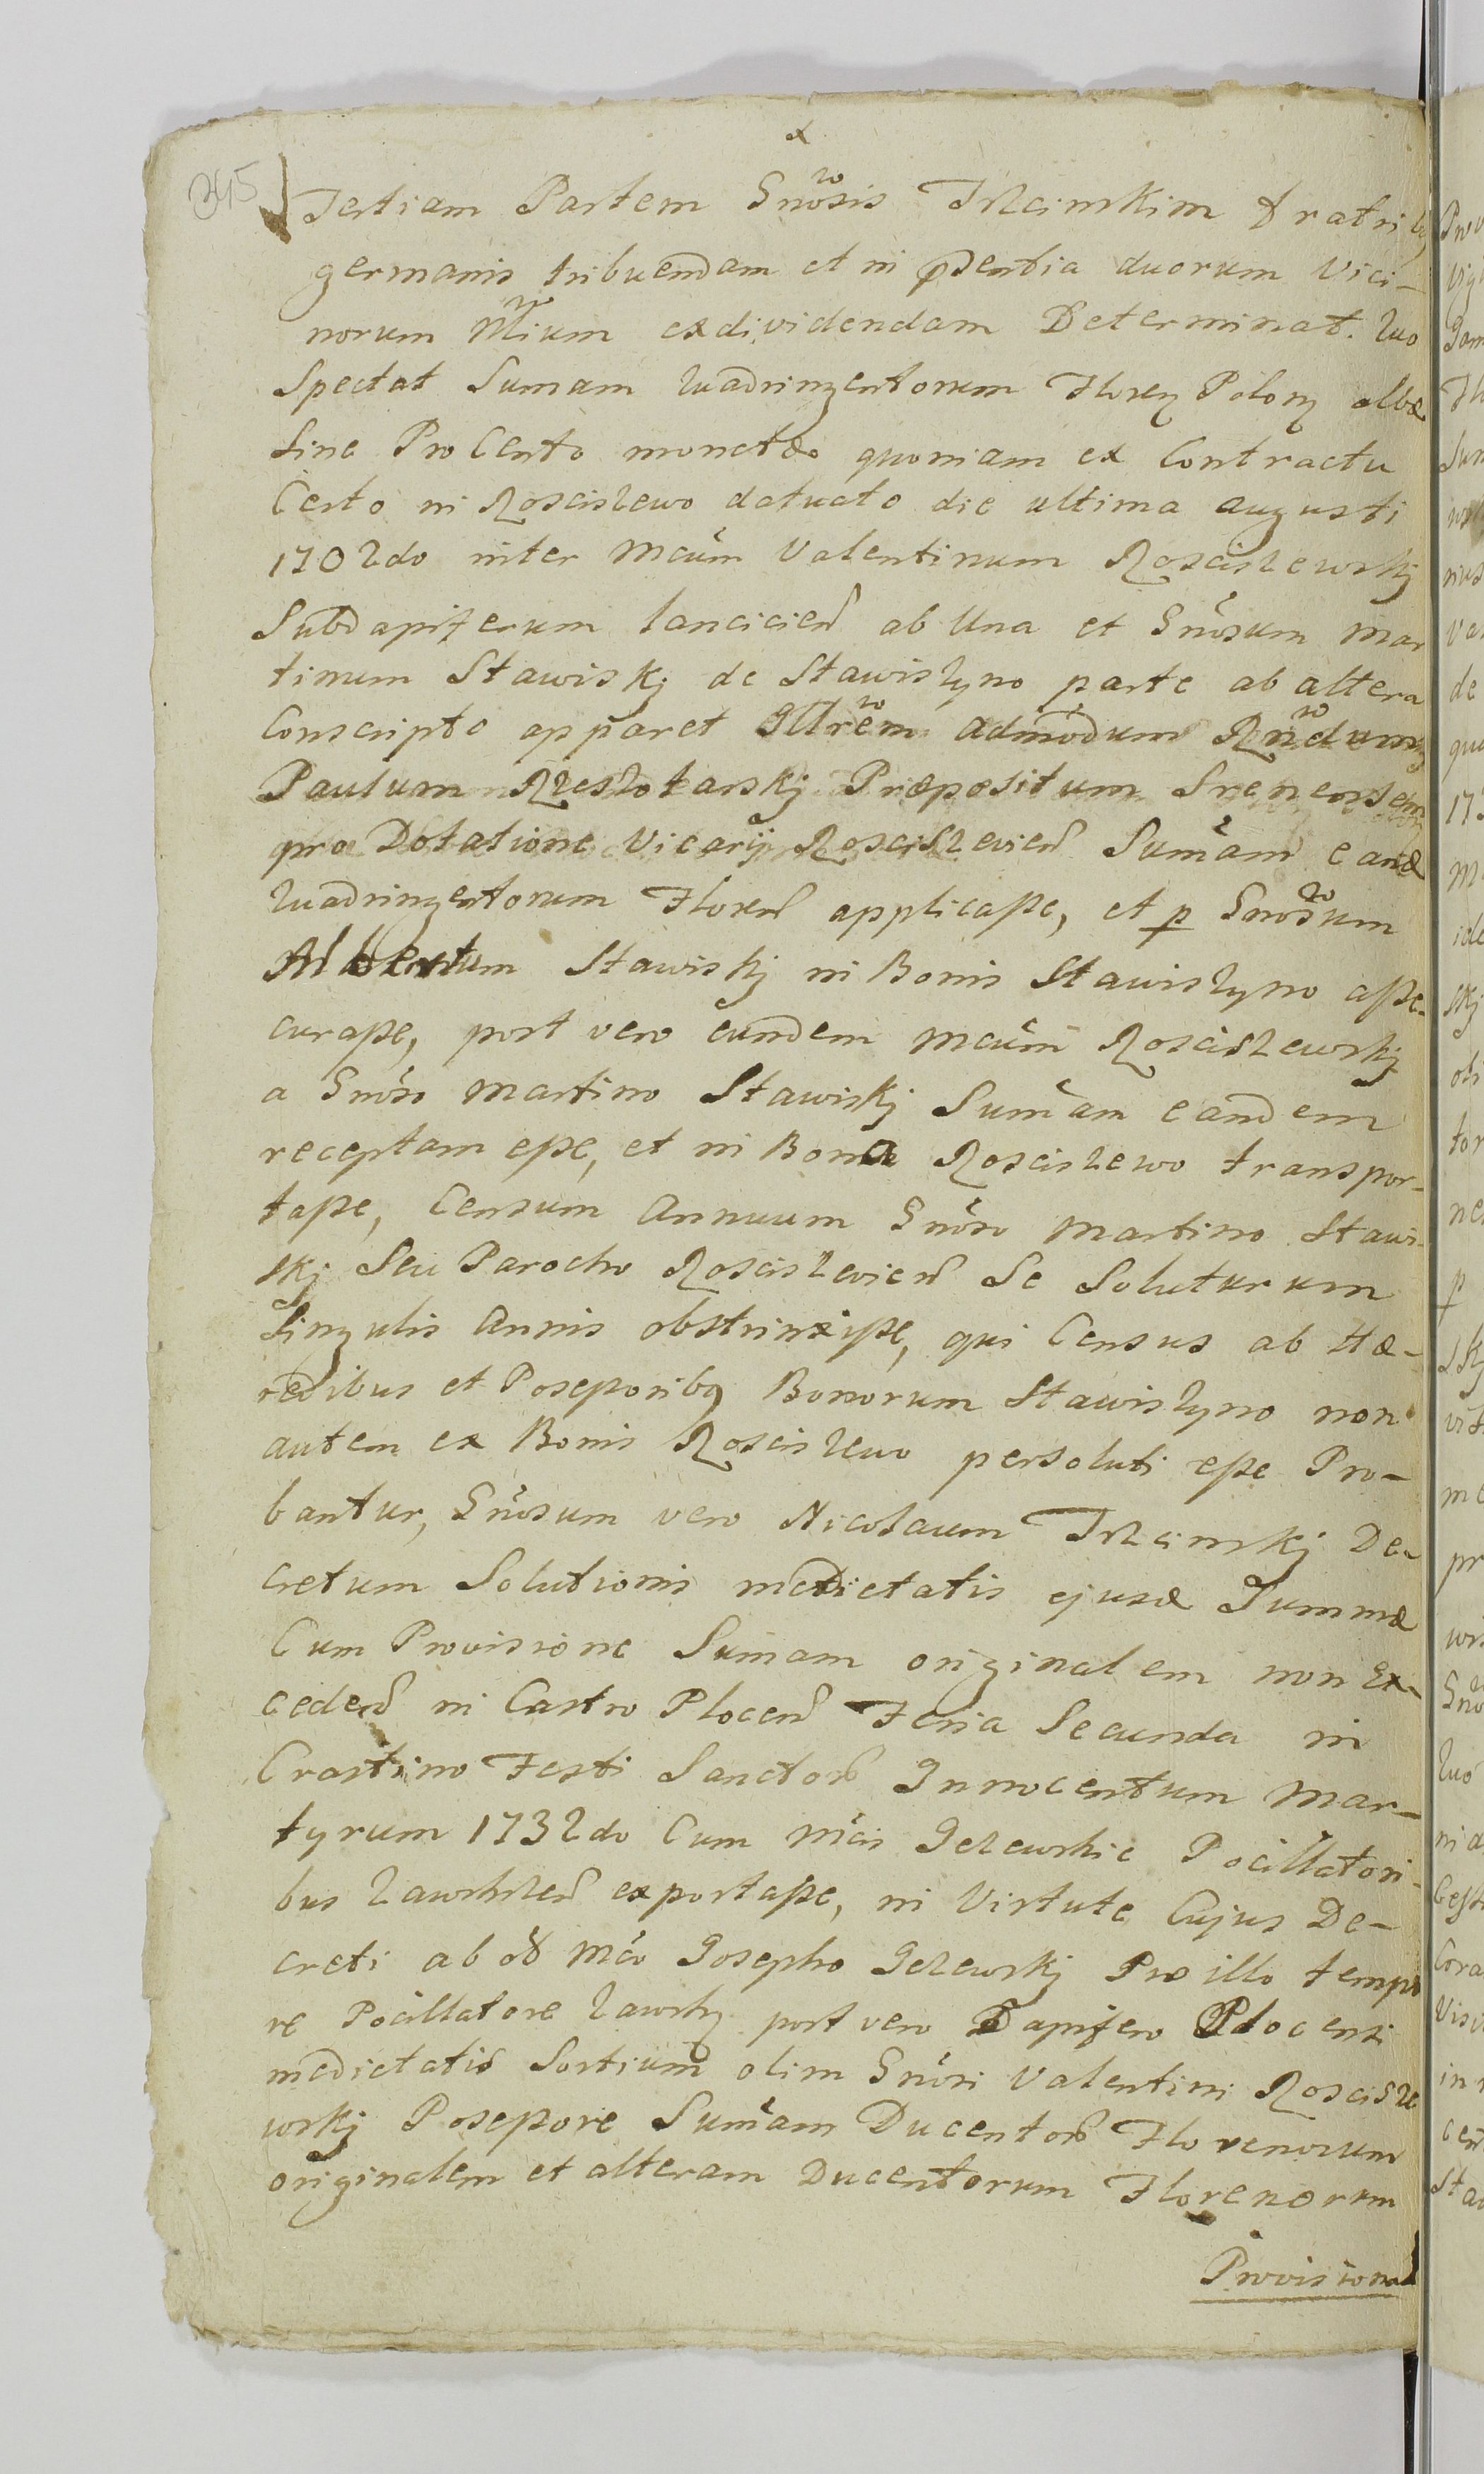 345
Tertiam Partem Gnosis Trzcinskim Fratribq
germanis tribuendam et in pñdentia duorum Vici-
norum Nblium exdividendam Determinat. Quo
Spectat Sumam Quadringentorum Floreň Poloň albæ
Sine Pro Cento monetæ quoniam ex Contractu
Certo in Roscisewo datuato die ultima augusti
1702do inter Mcum Valentinum Roscisewskj
Subdapiferum lancicieň ab Una et Gnosum Mar
tinum Stawiskj de Stawiszyno parte ab altera
Conscripto apparet Illrem admodum Rndum
Paulum Przeslotarskj Præpositum Srenensem
pro Dotatione Vicarij Rosciszevieň Sumam eand
Quadringentorum Floreň applicasse, et p Gnosum
Albertum Stawiskj in Bonis Stawiszyno asse-
curasse, post vero eundem Mcum Rosciszewskj
a Gnoso Martino Stawiskj Sumam eandem
receptam esse, et in Bona Rosciszewo transpor-
tasse, Censum Annuum Gnoso Martino Stawi-
skj Seu Parocho Rosciszevieň Se Soluturum
Singulis Annis obstrinxisse, qui Census ab Hæ-
redibus et Posessoribq Bonorum Stawiszyno non
autem ex Bonis Rosciszewo persoluti esse Pro-
bantur, Gnosum vero Nicolaum Trzcinskj De-
cretum Solutionis medietatis ejusd Summæ
Cum Provisione Sumam originalem non Ex-
cedeň in Castro Ploceň Feria Secunda in
Crastino Festi Sanctorř Innocentum Mar-
tyrum 1732do Cum Mcis Jezewskie Pocillatori-
bus Zawskrzeň exportasse, in Virtute Cujus De-
creti ab od Mco Josepho Jezewskj Pro illo tempo
re Pocillatore Zawskrz post vero Dapifero Plocensi
medietatis Sortium olim Gnosi Valentini Roscisze
wskj Posessore Sumam Ducentorř Florenorum
originalem et alteram Ducentorum Florenorum
Provisional